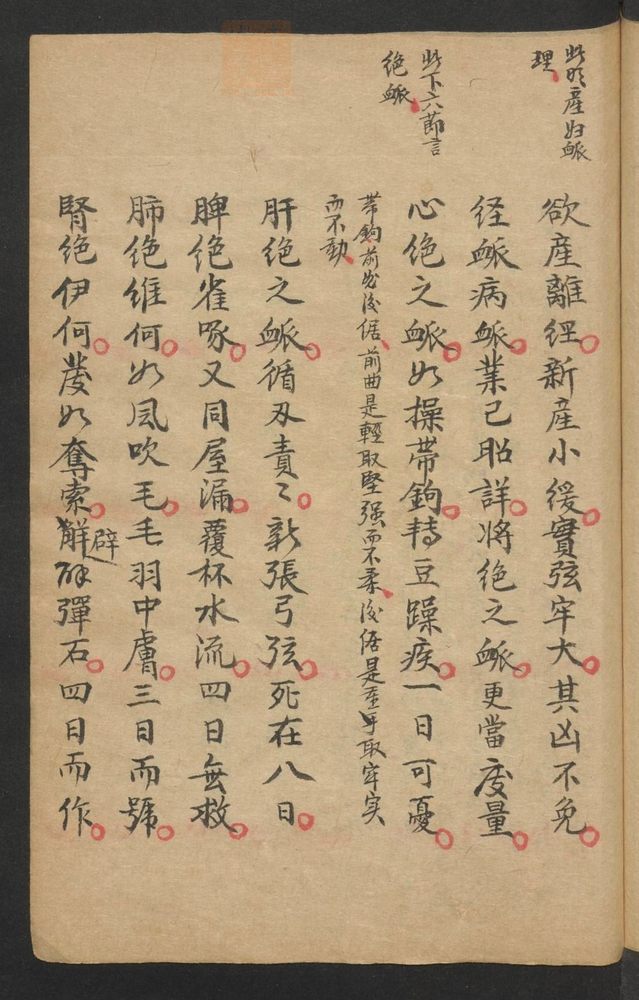 此明産妇脈
理
欲産離经新産小缓實弦牢大其凶不免
经脈病脈業已昭詳将绝之脈更當度量
此下六節言
绝脈
心绝之脈如操帶鉤转豆躁疾一日可憂
帶鉤前曲後倨前曲是輕取堅强而不柔後倨是重手取牢实
而不動
肝绝之脈循刃責〻新張弓弦死在八日
脾绝雀啄又同屋漏覆杯水流四日無救
肺绝维何如风吹毛毛羽中膚三日而號
腎绝伊何發如奪索辟辟彈石四日而作